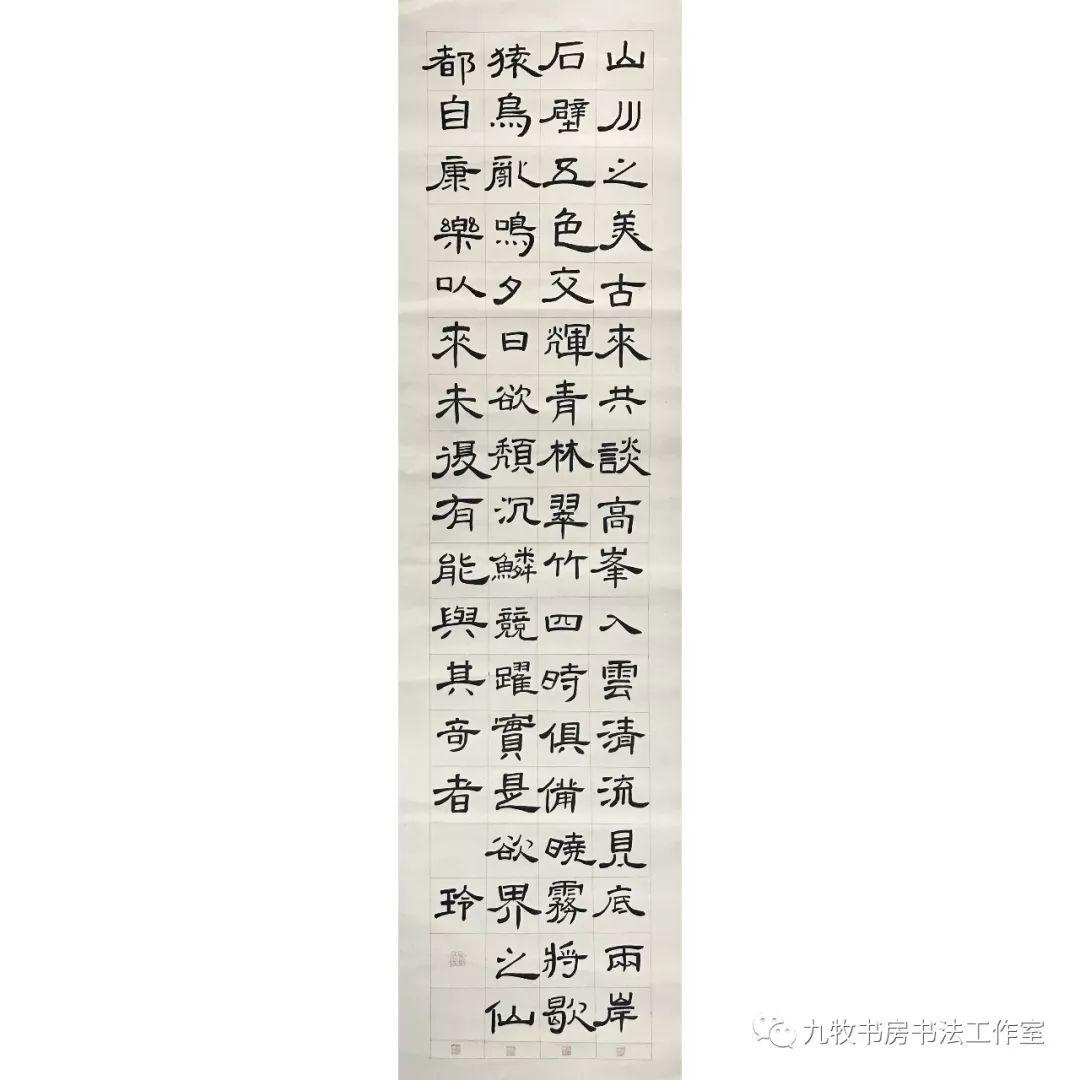 山川之美古來共談高峯入雲清流見底兩岸
石壁五色交輝青林翠竹四時俱備曉霧將歇
猿鳥亂鳴夕日欲頹沉鱗競躍實是欲界之仙
都自康樂以來未復有能與其奇者
玲
九牧书房书法工作室